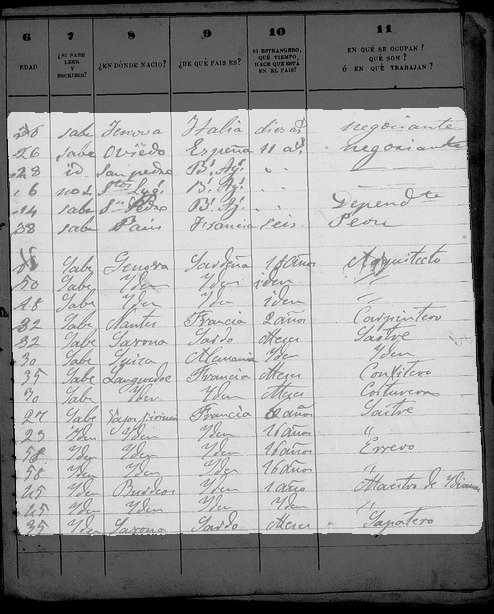 6 7 8 9 10 11
EDAD ¿SI SABE LEER Y ESCRIBIR? ¿EN DÓNDE NACIO? ¿DE QUÉ PAIS ES? SI ESTRANGERO, QUÉ TIEMPO HACE QUE ESTÁ EN EL PAIS? EN QUÉ SE OCUPAN? QUÉ SON? Ó EN QUÉ TRABAJAN?
sabe Italia negociante
26 sabe Oviedo España 11 negociante
28 id San pedro Bs. As.
16 Bs. As.
14 sabe Bs. As. Depend.te
38 sabe Paris Francia seis Peon
Sabe Genova Sardeña Años Arquitecto
50 Sabe Yden Yden iden "
18 Sabe Yden Yden iden "
32 Sabe Nantes Francia 2 años Carpintero
32 Sabe Savona Sardo Meses Sastre
30 Sabe Suiza Alemania Yden Yden
35 Sabe Languedoc Francia Meses Confitero
30 Sabe Yden Yden Meses Costurera
27 Sabe Francia años Sastre
23 Yden Yden Yden 16 años "
58 Yden Yden Yden 16 años Errero
58 Yden Yden Yden 16 años "
45 Yden Burdeos Yden 1 año Maestro de Ydiomas
45 Yden Yden Yden Yden "
35 Yden Savona Sardo Meses Sapatero